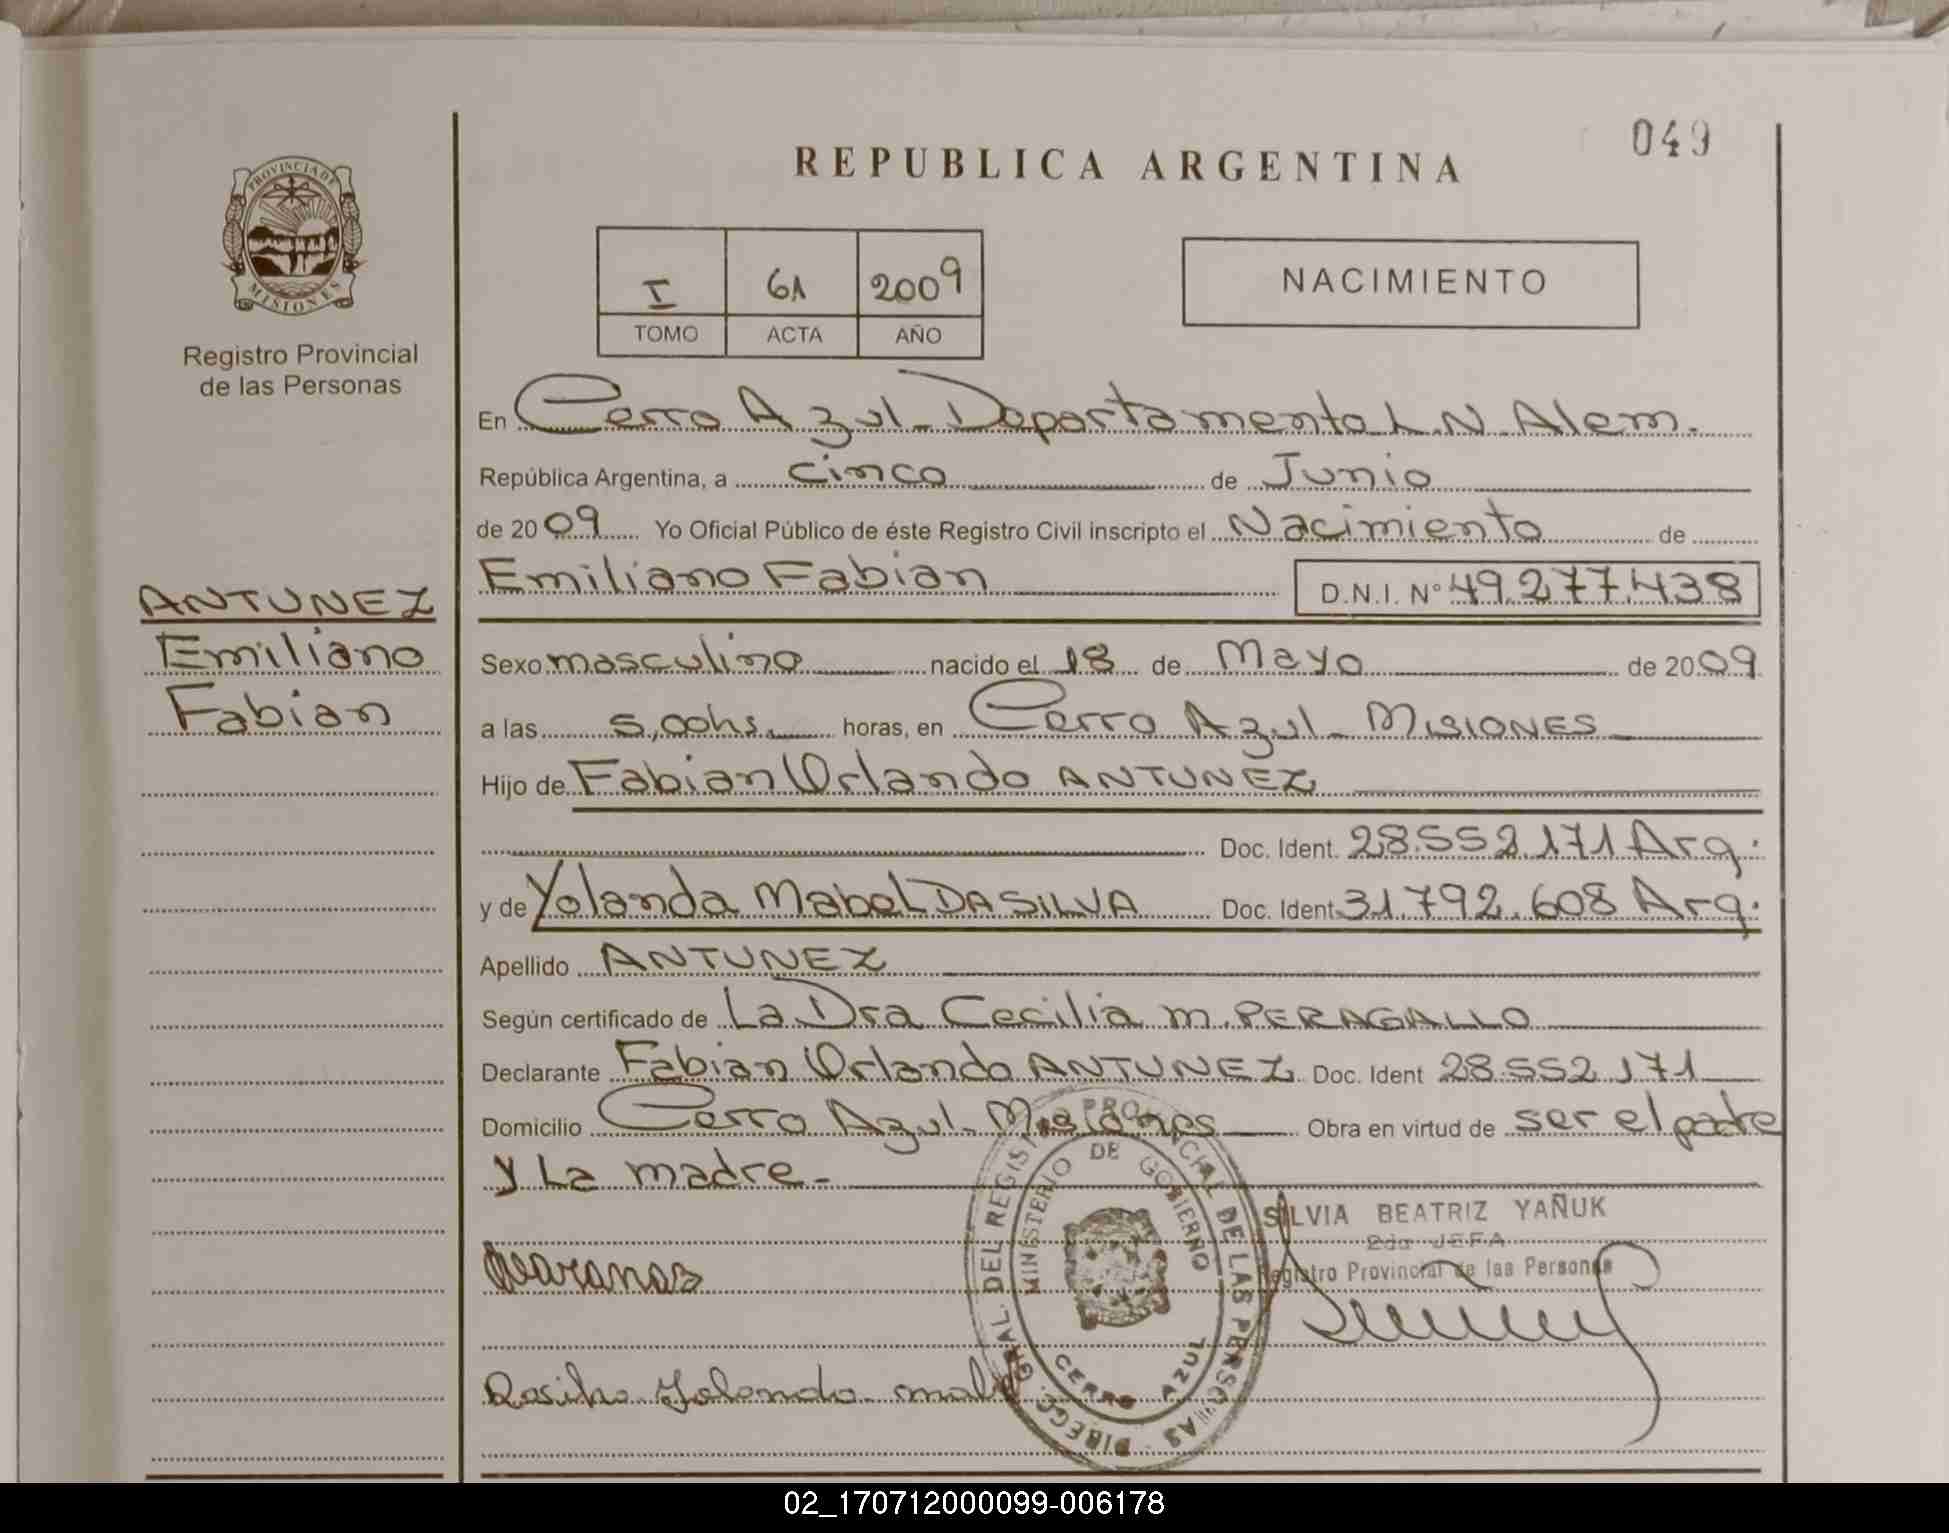 049
REPUBLICA ARGENTINA
PROVINCIA DE
MISIONES
Registro Provincial
de las Personas
I 61 2009
TOMO ACTA AÑO
NACIMIENTO
En Cerro Azul - Departamento L.N. Alem.
República Argentina, a cinco de Junio
de 2009 Yo Oficial Público de éste Registro Civil inscripto el Nacimiento de
Emiliano Fabian D.N.I. N° 49.277.438
ANTUNEZ
Emiliano
Fabian
Sexo masculino nacido el 18 de Mayo de 2009
a las 5,00hs. horas, en Cerro Azul - MISIONES
Hijo de Fabian Orlando ANTUNEZ
Doc. Ident. 28.552.171 Arg.
y de Yolanda Mabel DA SILVA Doc. Ident. 31.792.608 Arg.
Apellido ANTUNEZ
Según certificado de La Dra Cecilia M. PERAGALLO
Declarante Fabian Orlando ANTUNEZ Doc. Ident 28.552.171
Domicilio Cerro Azul - Misiones Obra en virtud de ser el padre
y La madre -
SILVIA BEATRIZ YAÑUK
2da JEFA
Registro Provincial de las Personas
MINISTERIO DE GOBIERNO
CERRO AZUL
02_170712000099-006178